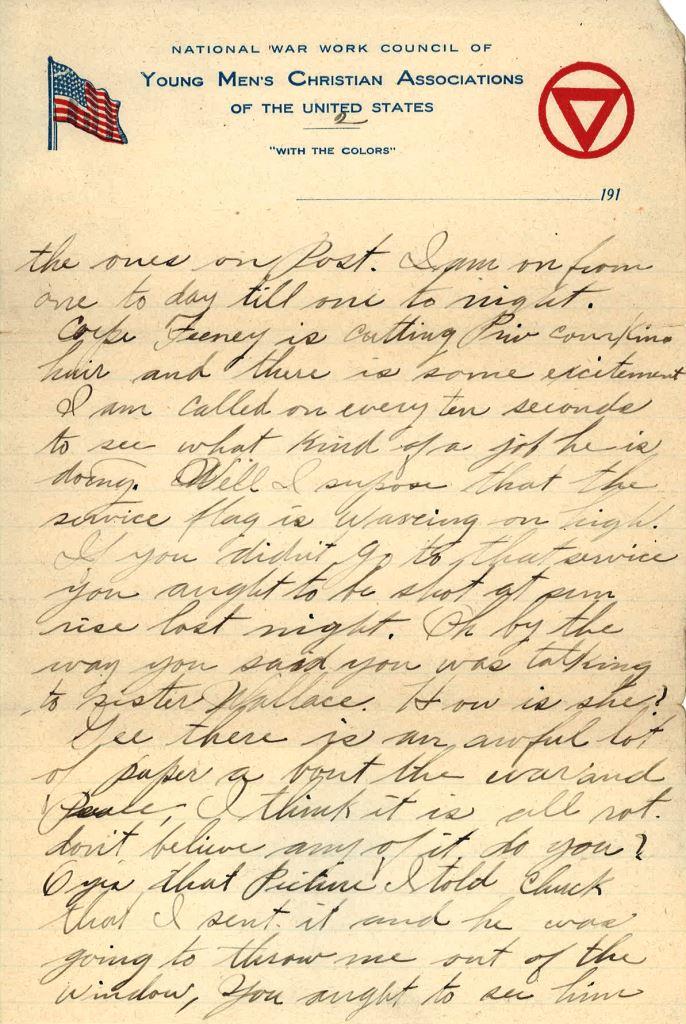 NATIONAL WAR WORK COUNCIL OF
YOUNG MEN'S CHRISTIAN ASSOCIATIONS
OF THE UNITED STATES
2
"WITH THE COLORS"
191
the ones on Post. I am on from
one to day till one to night.
Feeney is cutting Priv
hair and there is some excitement
I am called on every ten seconds
to see what kind of a job he is
doing. Well I supose that the
service flag is waveing on high.
If you didn't go to that service
you aught to be shot at sun
rise last night. Oh by the
way you said you was talking
to sister Wallace. How is she?
Gee there is an awful lot
of paper a bout the war and
Peace, I think it is all rot.
don't believe any of it do you?
O yes that Picture! I told Chuck
that I sent it and he was
going to throw me out of the
window, You aught to see him